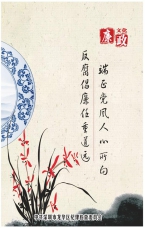 廉政
文化
端正党风人心所向
反腐倡廉任重道远